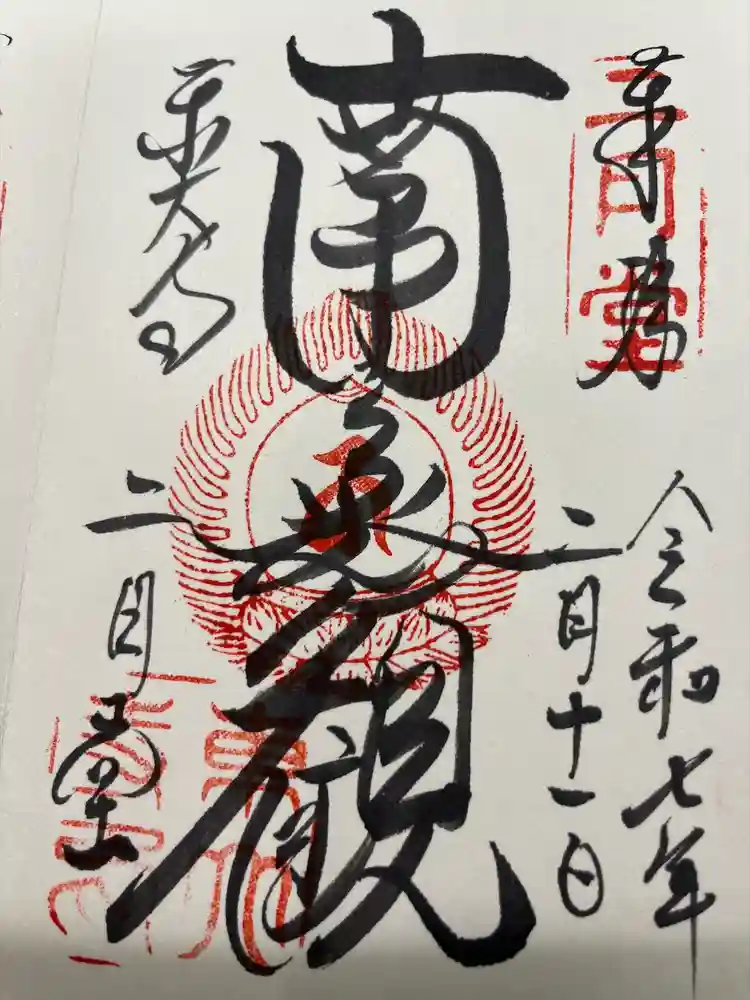 奉拝
二月堂
令和七年
二月十一日
南無観
東大寺
二月堂